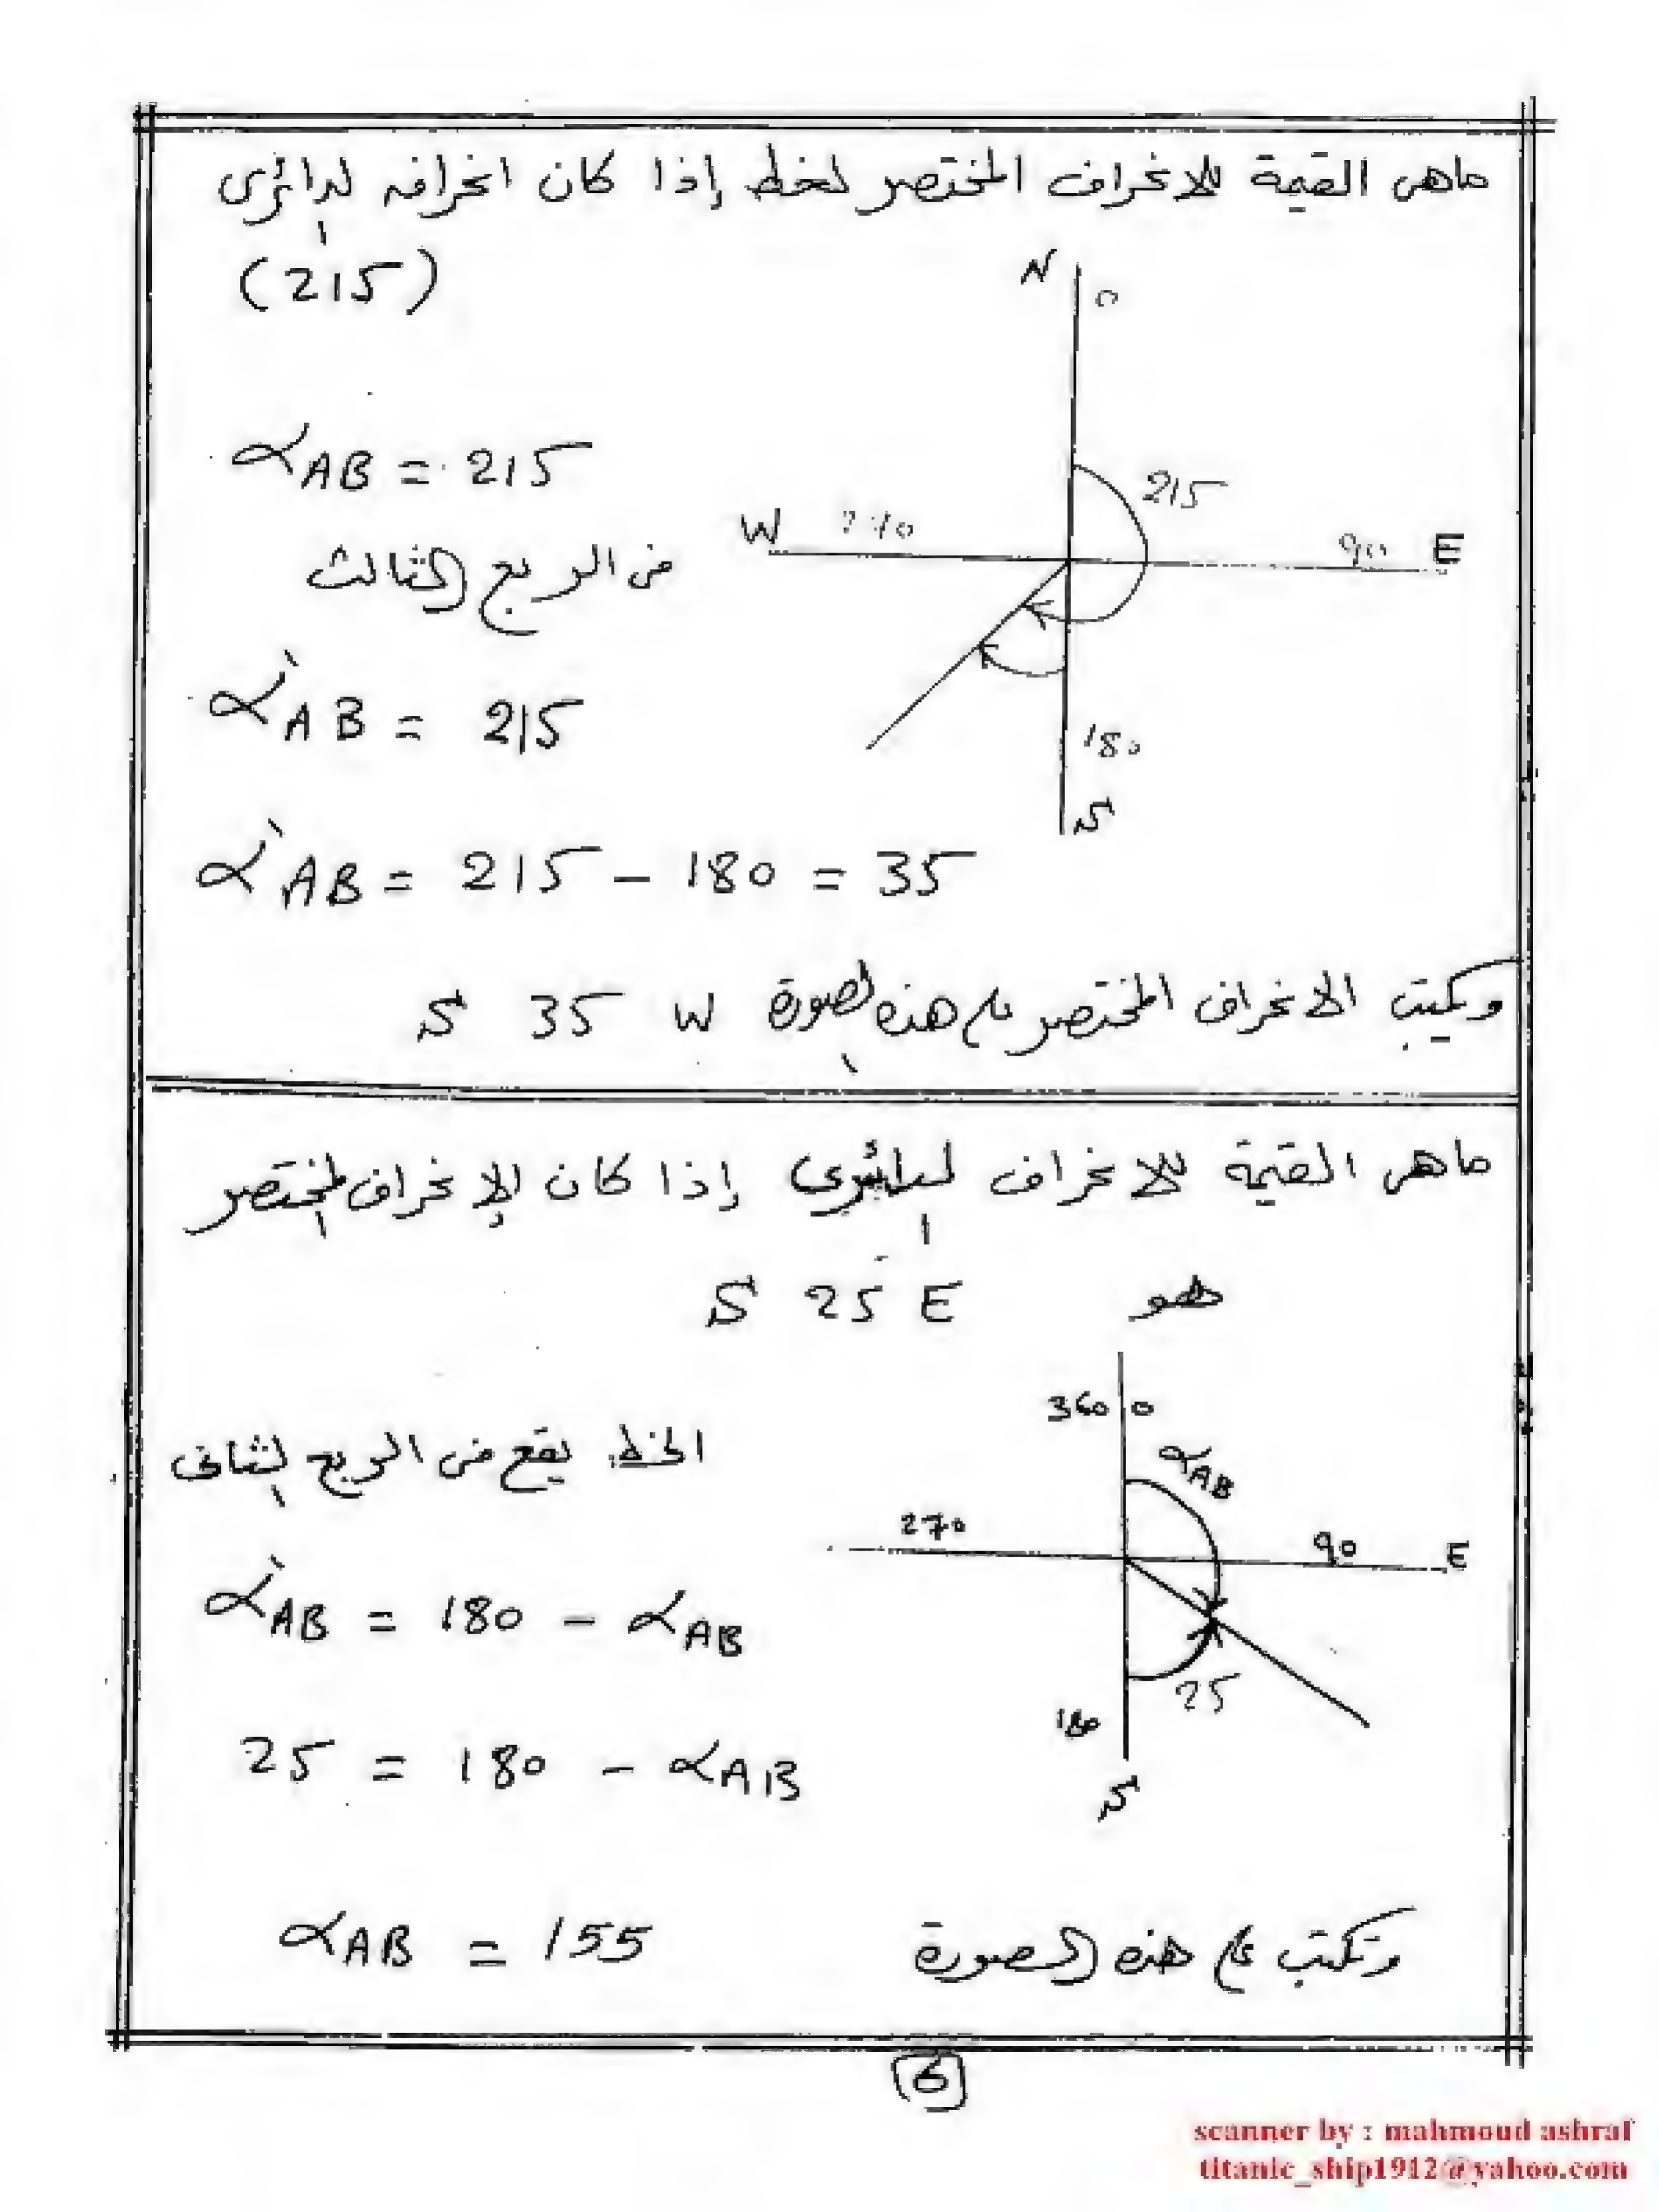 ماهى القيمة للانحراف المختصر لخط إذا كان انحرافه الدائرى
(215)
N 0
αAB = 215
215
W 270 90 E
فى الربع الثالث
α'AB = 215
180
S
α'AB = 215 - 180 = 35
ويكتب الانحراف المختصر على هذه الصورة S 35 W
ماهى القيمة للانحراف الدائرى إذا كان الإنحراف المختصر
هو S 25 E
360 0
αAB
الخط يقع فى الربع الثانى
270 90 E
α'AB = 180 - αAB
25
180
25 = 180 - αAB
S
وتكتب على هذه الصورة αAB = 155
6
scanner by : mahmoud ashraf
titanic_ship1912@yahoo.com